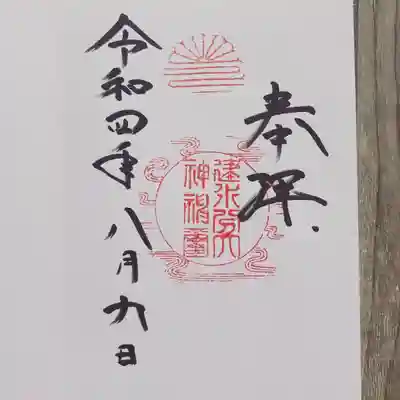 奉拝
建水分
神社璽
令和四年八月九日